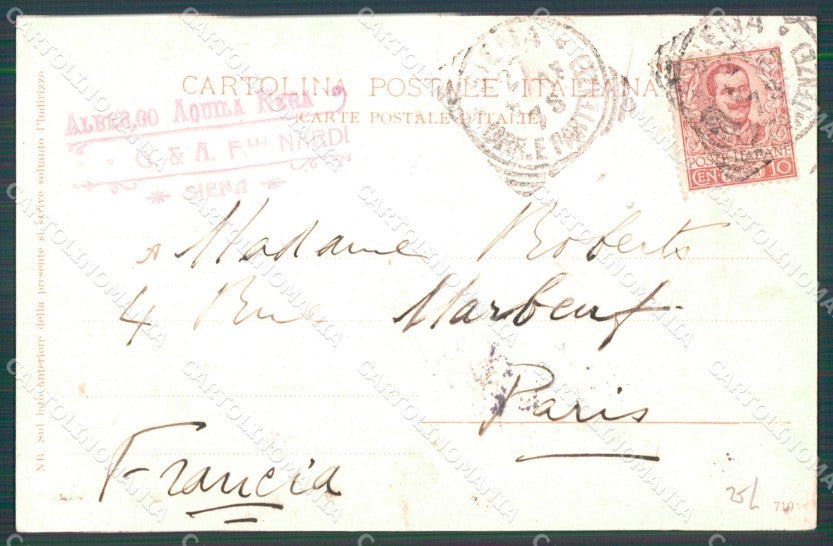 CARTOLINA POSTALE ITALIANA
(CARTE POSTALE D'ITALIE)
ALBERGO AQUILA NERA
G. & A. F.lli NARDI
SIENA
SIENA
POSTE ITALIANE
CENT. 10
A Madame Roberts
4 Rue Marbeuf
Paris
Francia
NB. Sul lato anteriore della presente si scrive soltanto l'indirizzo
25/
710
CARTOLINOMANIA